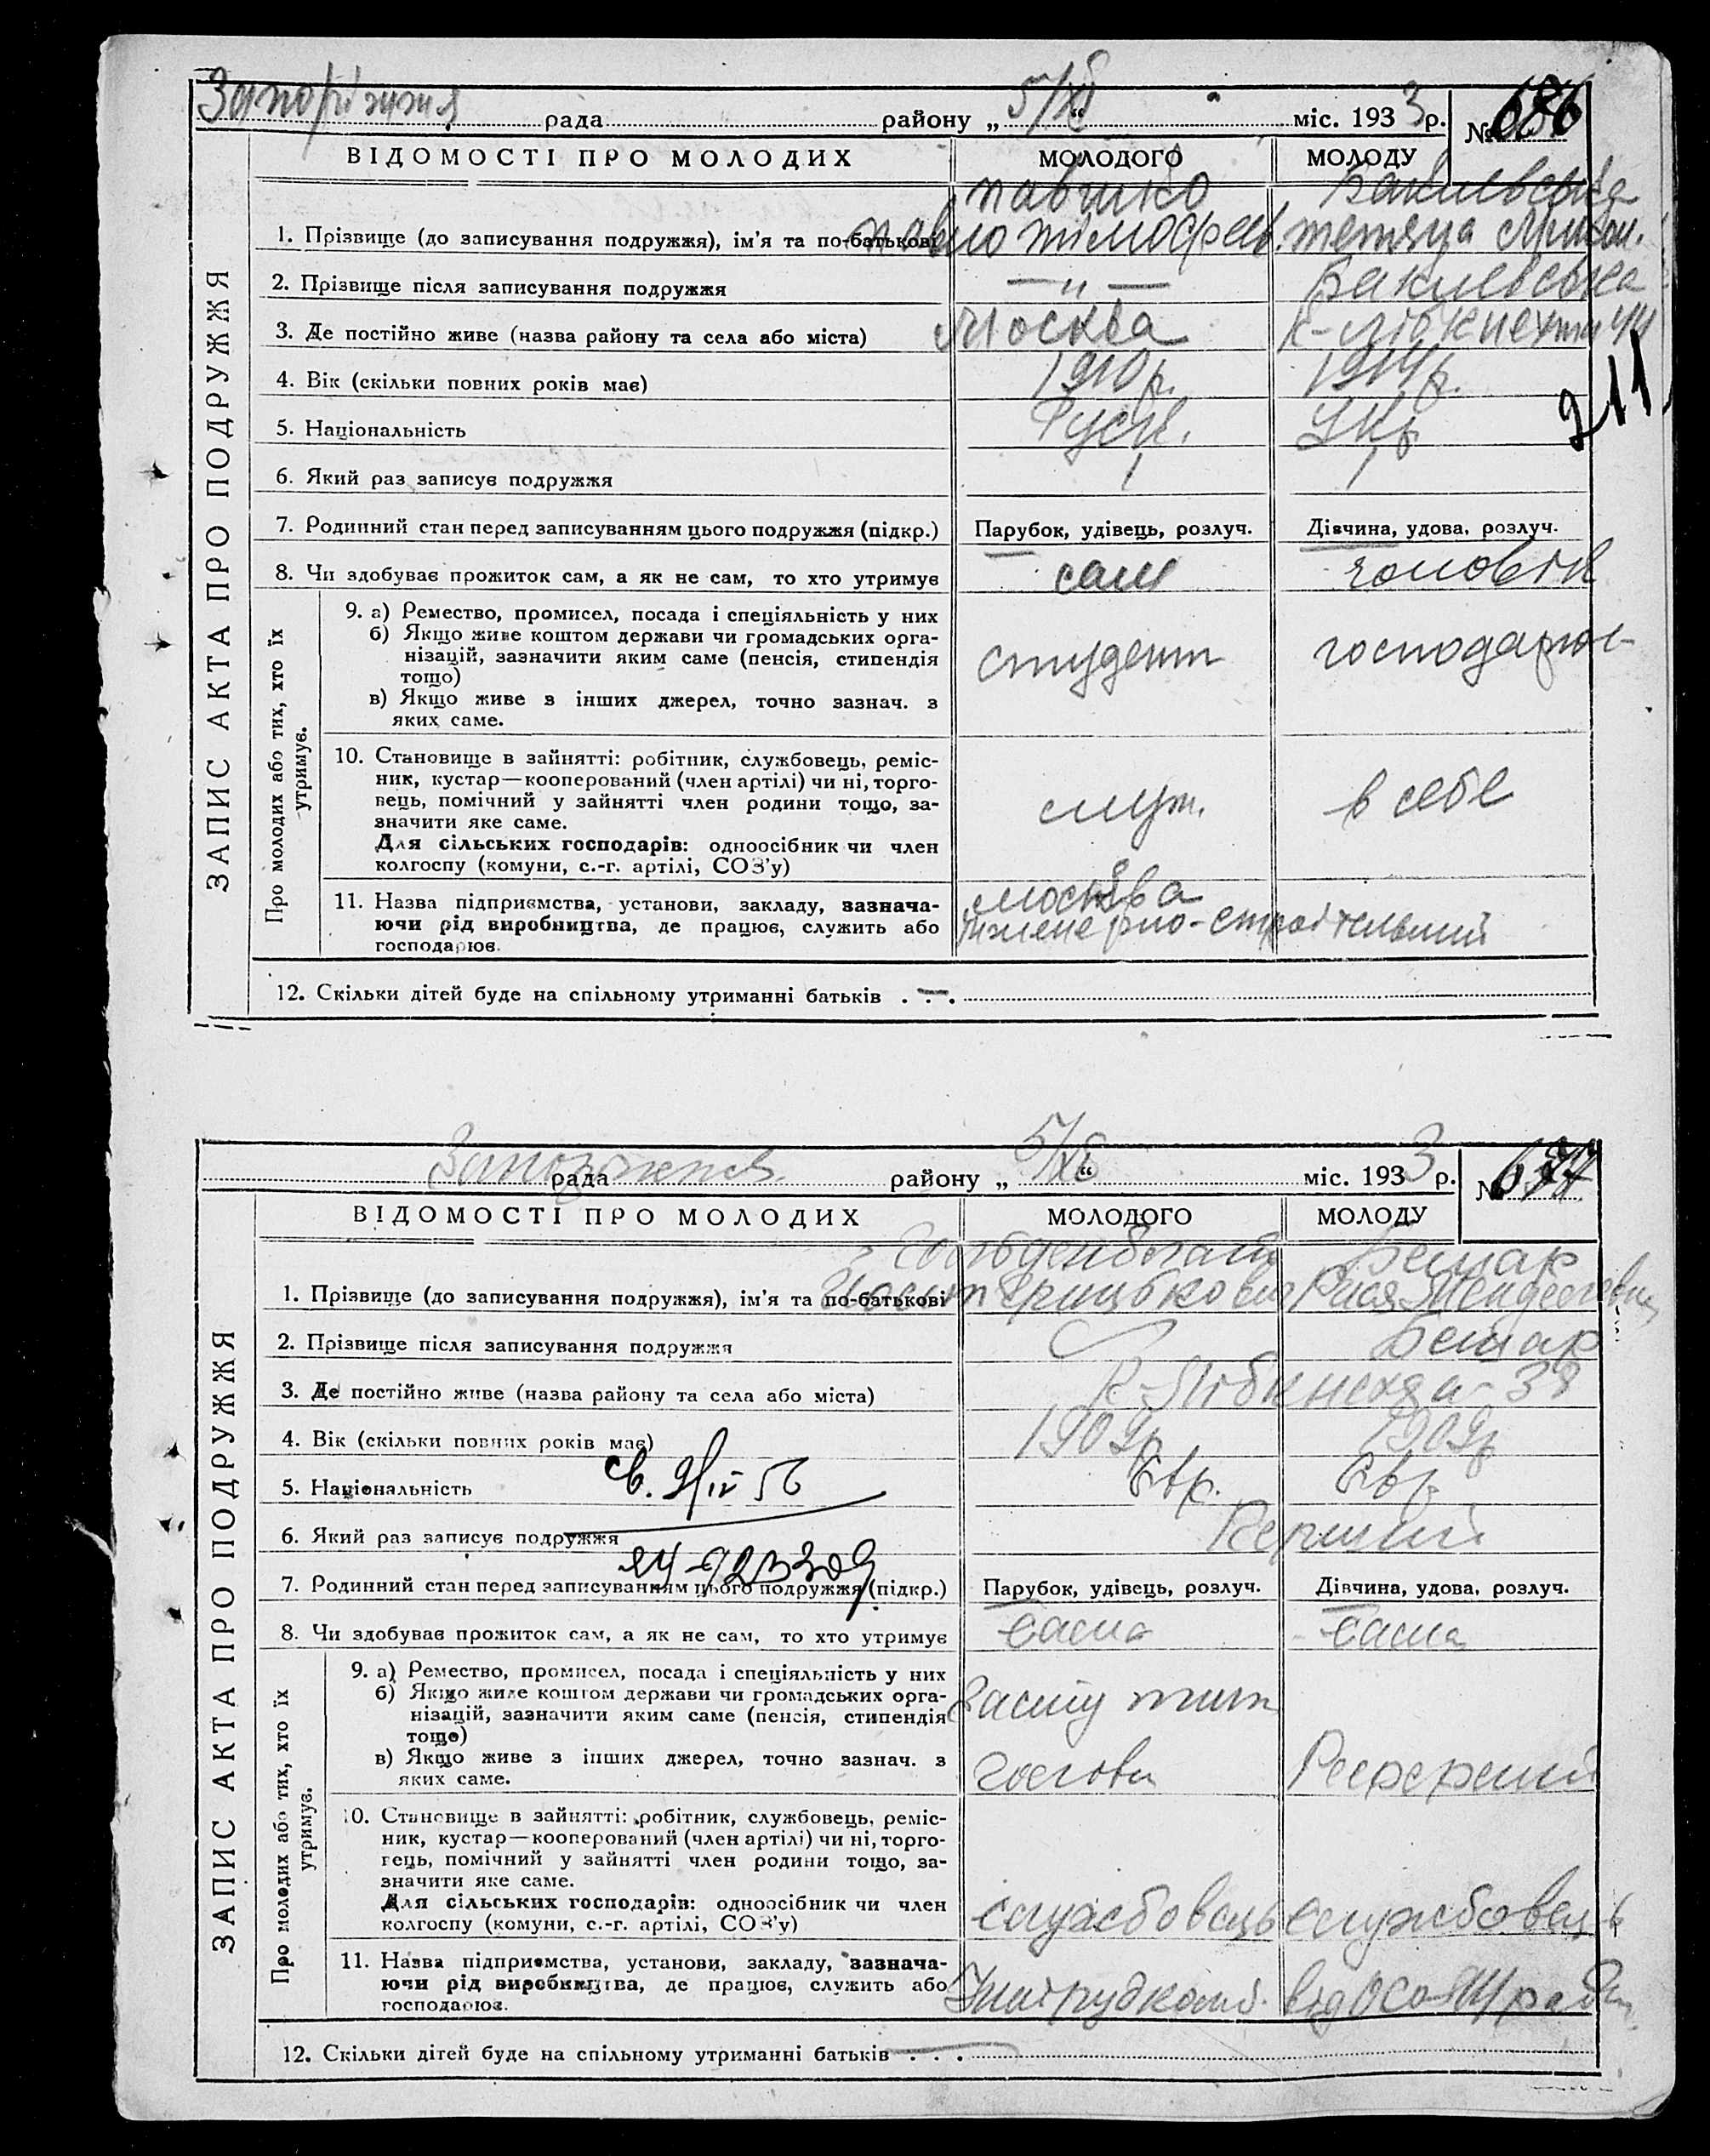 Запоріжжя рада району „ 5/XI “ міс. 1933 р. № 686
ВІДОМОСТІ ПРО МОЛОДИХ МОЛОДОГО МОЛОДУ
ЗАПИС АКТА ПРО ПОДРУЖЖЯ
1. Прізвище (до записування подружжя), ім’я та по-батькові Павло Тімофеев. Тетяна
2. Прізвище після записування подружжя — „ —
3. Де постійно живе (назва району та села або міста) Москва К-Лібкнехта 44
4. Вік (скільки повних років має) 1910 р. 1914 р.
211
5. Національність Руськ. Укр
6. Який раз записує подружжя 1 1
7. Родинний стан перед записуванням цього подружжя (підкр.) Парубок, удівець, розлуч. Дівчина, удова, розлуч.
8. Чи здобуває прожиток сам, а як не сам, то хто утримує сам чоловік
Про молодих або тих, хто їх утримує.
9. а) Ремество, промисел, посада і спеціяльність у них
б) Якщо живе коштом держави чи громадських орга-
нізацій, зазначити яким саме (пенсія, стипендія студент господарює
тощо)
в) Якщо живе з інших джерел, точно зазнач. з
яких саме.
10. Становище в зайнятті: робітник, службовець, реміс-
ник, кустар—кооперований (член артілі) чи ні, торго-
вець, помічний у зайнятті член родини тощо, за- служ. в себе
значити яке саме.
Для сільських господарів: одноосібник чи член
колгоспу (комуни, с.-г. артілі, СОЗ’у)
11. Назва підприємства, установи, закладу, зазнача- Москва
ючи рід виробництва, де працює, служить або Інженерно-строітельний
господарює.
12. Скільки дітей буде на спільному утриманні батьків . — .
рада району „ 5/XI “ міс. 1933 р. №
ВІДОМОСТІ ПРО МОЛОДИХ МОЛОДОГО МОЛОДУ
ЗАПИС АКТА ПРО ПОДРУЖЖЯ
1. Прізвище (до записування подружжя), ім’я та по-батькові
2. Прізвище після записування подружжя
3. Де постійно живе (назва району та села або міста) 38
4. Вік (скільки повних років має) 1909 р 1909 р
5. Національність св. 9/IV 56 Євр. Євр.
6. Який раз записує подружжя Перший
7. Родинний стан перед записуванням цього подружжя (підкр.) Парубок, удівець, розлуч. Дівчина, удова, розлуч.
8. Чи здобуває прожиток сам, а як не сам, то хто утримує сама сама
Про молодих або тих, хто їх утримує.
9. а) Ремество, промисел, посада і спеціяльність у них
б) Якщо живе коштом держави чи громадських орга-
нізацій, зазначити яким саме (пенсія, стипендія
тощо)
в) Якщо живе з інших джерел, точно зазнач. з
яких саме.
10. Становище в зайнятті: робітник, службовець, реміс-
ник, кустар—кооперований (член артілі) чи ні, торго-
вець, помічний у зайнятті член родини тощо, за-
значити яке саме.
Для сільських господарів: одноосібник чи член
колгоспу (комуни, с.-г. артілі, СОЗ’у) службовець службовець
11. Назва підприємства, установи, закладу, зазнача-
ючи рід виробництва, де працює, служить або
господарює.
12. Скільки дітей буде на спільному утриманні батьків . . .